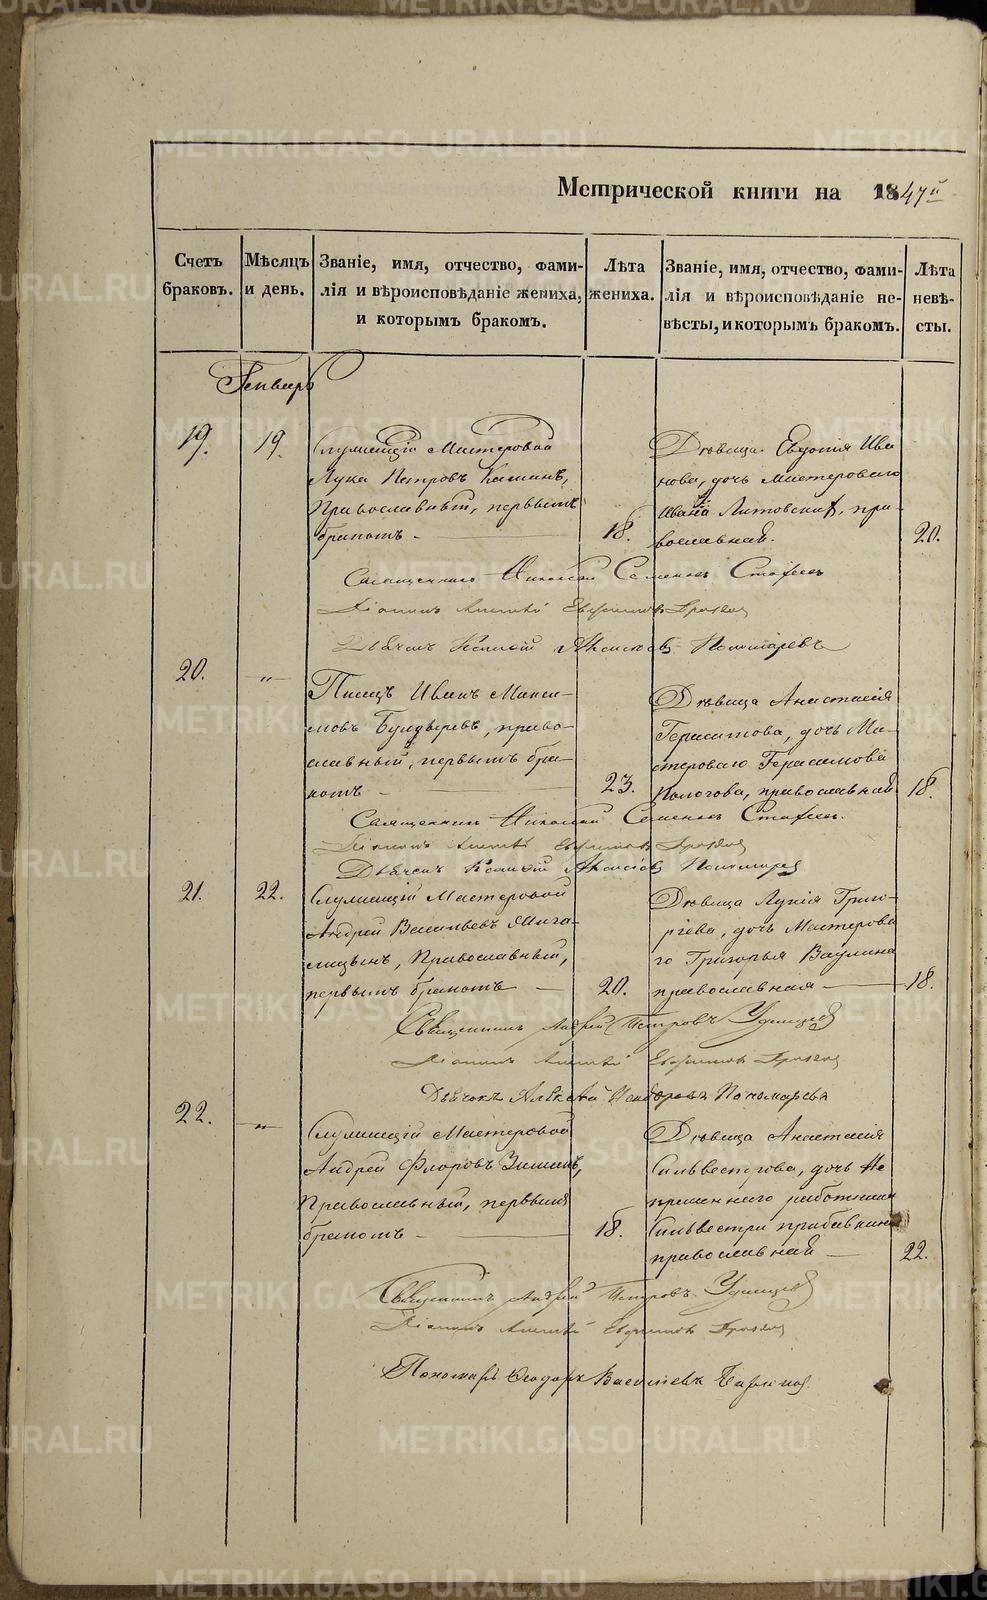 Метрической книги на 1847й
Счетъ браковъ.
Мѣсяцъ и день.
Званіе, имя, отчество, фами-
лія и вѣроисповѣданіе жениха,
и которымъ бракомъ.
Лѣта жениха.
Званіе, имя, отчество, фами-
лія и вѣроисповѣданіе не-
вѣсты, и которымъ бракомъ.
Лѣта невѣ-
сты.
Генварь
19. 19.
Служащій Мастеровой
Лука Петровъ
Православный, первымъ
бракомъ - 18.
Дѣвица Евдокія Ива
нова, дочь мастероваго
Ивана пра-
вославная. 20.
Священникъ Николай Семеновъ
Діаконъ Алексѣй
Дьячекъ Пономаревъ
20. -"-
Писецъ Иванъ Макси-
мовъ право-
славный, первымъ бра-
комъ - 23.
Дѣвица Анастасія
Герасимова, дочь Ма-
стероваго Герасимова
православная 18.
Священникъ Николай Семеновъ
Діаконъ Алексѣй
Дьячекъ
21. 22.
Служащій Мастеровой
Андрей Васильевъ
Православный,
первымъ бракомъ - 20.
Дѣвица Лукія Григо-
рьева, дочь Мастерова
го Григорья Ваулина
православная - 18.
Священникъ Андрей Петровъ Удинцев
Діаконъ Алексѣй
Дьячокъ Алексѣй Пономаревъ
22. -"-
Служащій Мастеровой
Андрей Флоровъ Зиминъ,
Православный, первымъ
бракомъ - 18.
Дѣвица Анастасія
Сильвестрова, дочь Не
премѣннаго работника
Сильвестра
православная - 22.
Священникъ Андрей Петровъ Удинцев
Діаконъ Алексѣй
Пономарь Ѳеодоръ Васильевъ
METRIKI.GASO-URAL.RU